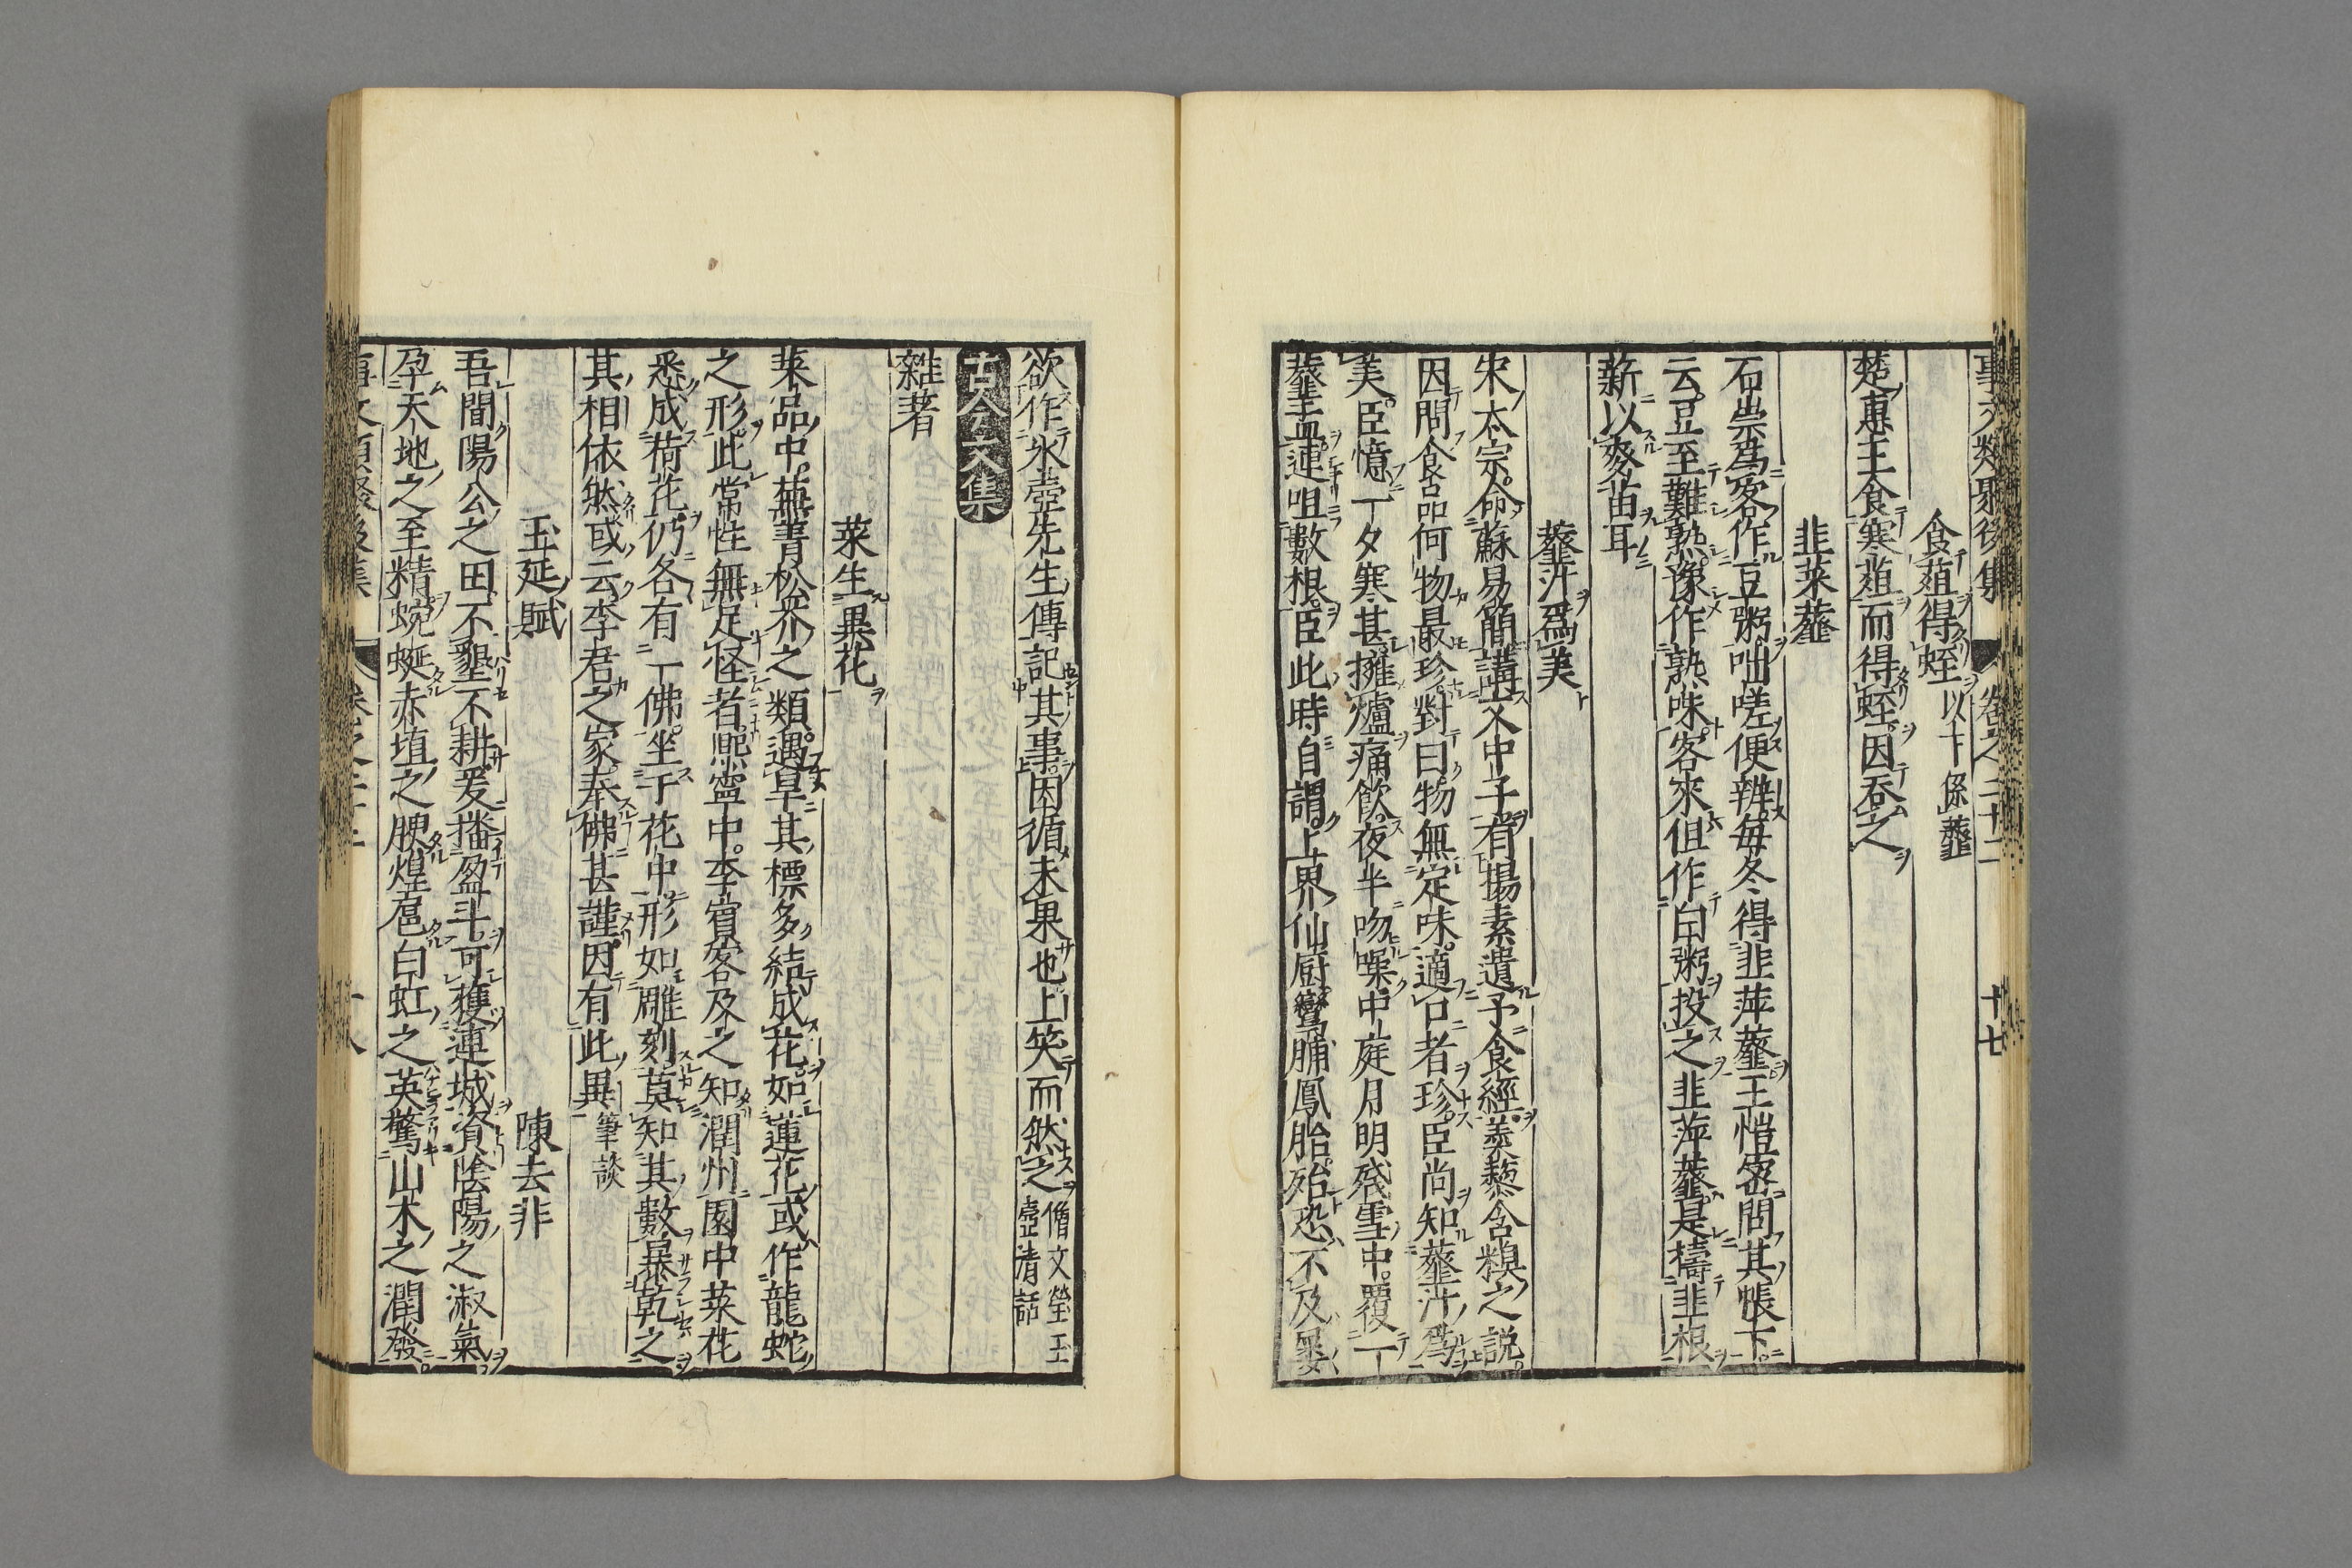 事文類聚後集 卷之二十二 十七
食葅得蛭 以下係虀
楚惠王食寒葅而得蛭因吞之
韭菜虀
石崇爲客作豆粥咄嗟便辨每冬得韭萍虀王愷密問其帳下
云豆至難熟豫作熟味客來但作白粥投之韭萍虀是擣韭根
薪以麥苗耳
虀汁爲美
宋太宗命蘇易簡講文中子有揚素遺子食經羹藜含糗之説
因問食品何物最珍對曰物無定味適口者珍臣尚知虀汁爲
美臣憶一夕寒甚擁爐痛飲夜半吻噪中庭月明殘雪中覆一
虀盂連咀數根臣此時自謂上界仙厨鸞脯鳳胎殆恐不及屢
欲作氷壺先生傳記其事因循未果也上笑而然之 僧文瑩玉
壺清話
古今文集
雜著
菜生異花
菜品中蕪菁松芥之類遇旱其標多結成花如蓮花或作龍蛇
之形此常性無足怪者熙寧中李賓客及之知潤州園中菜花
悉成荷花仍各有一佛坐于花中形如雕刻莫知其數暴乾之
其相依然或云李君之家奉佛甚謹因有此異 筆談
玉延賦 陳去非
吾聞陽公之田不墾不耕爰播盈斗可穫連城資陰陽之淑氣
孕天地之至精蜿蜒赤埴之腴煌扈白虹之英驚山木之潤發